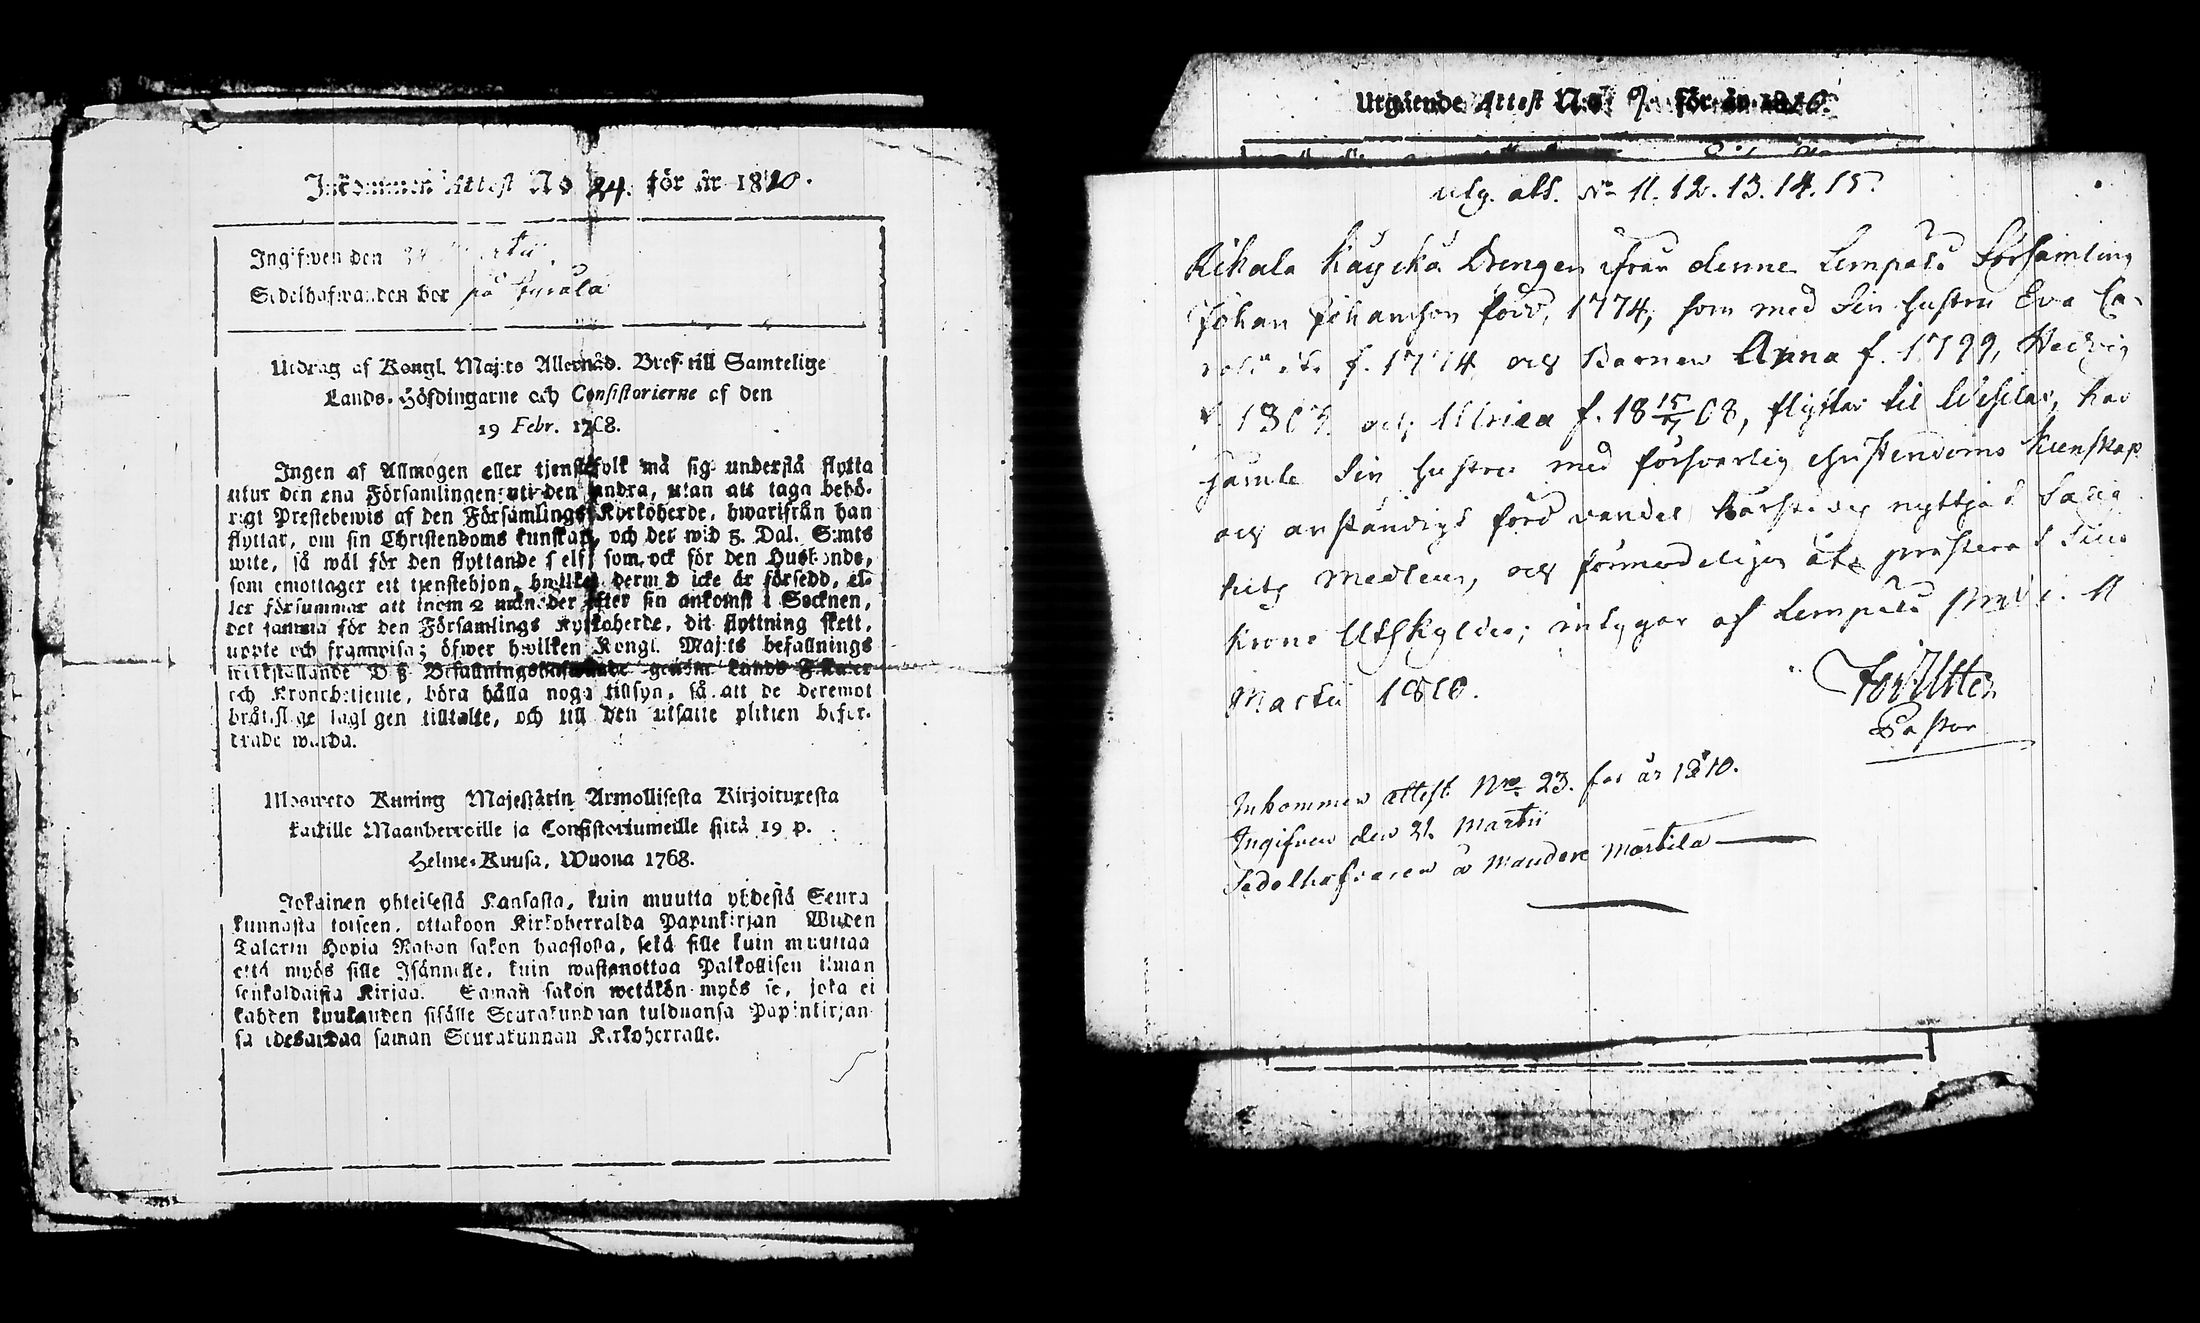 Inkommen Attest No 24. för år 1810.
Ingifwen den Martii
Sedelhafwanden bor på
Utdrag af Kongl. Maj:ts Allernåd. Bref till Samtelige
Lands-Höfdingarne och Consistorierne af den
19 Febr. 1768.
Ingen af Allmogen eller tjenstefolk må sig understå flytta
utur den ena Församlingen uti den andra, utan att taga behö-
rigt Prestebewis af den Församlings Kyrkoherde, hwarifrån han
flyttar, om sin Christendoms kunskap, och det wid 5. Dal. S:mts
wite, så wäl för den flyttande sielf som ock för den Husbonde,
som emottager ett tjenstehjon, hwilket dermed icke är försedd, el-
ler försummar att inom 2 månader efter sin ankomst i Socknen,
det samma för den Församlings Kyrkoherde, dit flyttning skett,
uppte och framwisa; öfwer hwilken Kongl. Maj:ts befallnings
werkställande Befallningshafwande genom Lands Fiskaler
och Kronobetjente, böra hålla noga tillsyn, så att de deremot
brotslige lagligen tilltalte, och till den utsatte plikten befor-
drade warda.
Ulosweto Kuning Majestätin Armollisesta Kirjoituxesta
kaikille Maanherroille ja Consistoriumeille siitä 19 p.
Helme-Kuusa, Wuona 1768.
Jokainen yhteisestä Kansasta, kuin muutta yhdestä Seura
kunnasta toiseen, ottakoon Kirkoherralda Papinkirjan Wiiden
Talarin Hopia Rahan sakon haastolla, sekä sille kuin muuttaa
että myös sille Isännälle, kuin wastanottaa Palkollisen ilman
senkaldaista Kirjaa. Saman sakon wetäkön myös se, joka ei
kahden kuukauden sisälle Seurakundaan tulduansa Papinkirjan-
sa edesandaa saman Seurakunnan Kirkoherralle.
Utgående Attest N:o 9 för år 1810.
utg. att. No 11. 12. 13. 14. 15.
Rikala Käyckä Drengen ifrån denne Lempälä Församling
Johan Johansson född 1774, som med sin hustru Eva Ca-
f. 1774 och Barnen Anna f. 1799, Hedvig
f. och Ulrica f. 18 15/7 08, flyttar til har
samte sin hustru med försvarlig christendoms kunskap
och anständigt förd vandel härstädes nyttjat Salig
hets medlen, och förmodeligen äfv. presterat sine
Krono Utskylder; intygar af Lempälä 11
Martii 1810.
Pastor
Inkommen attest Nro 23. för år 1810.
Ingifven den 21. Martii
Sedelhafvaren å Mandere Martila